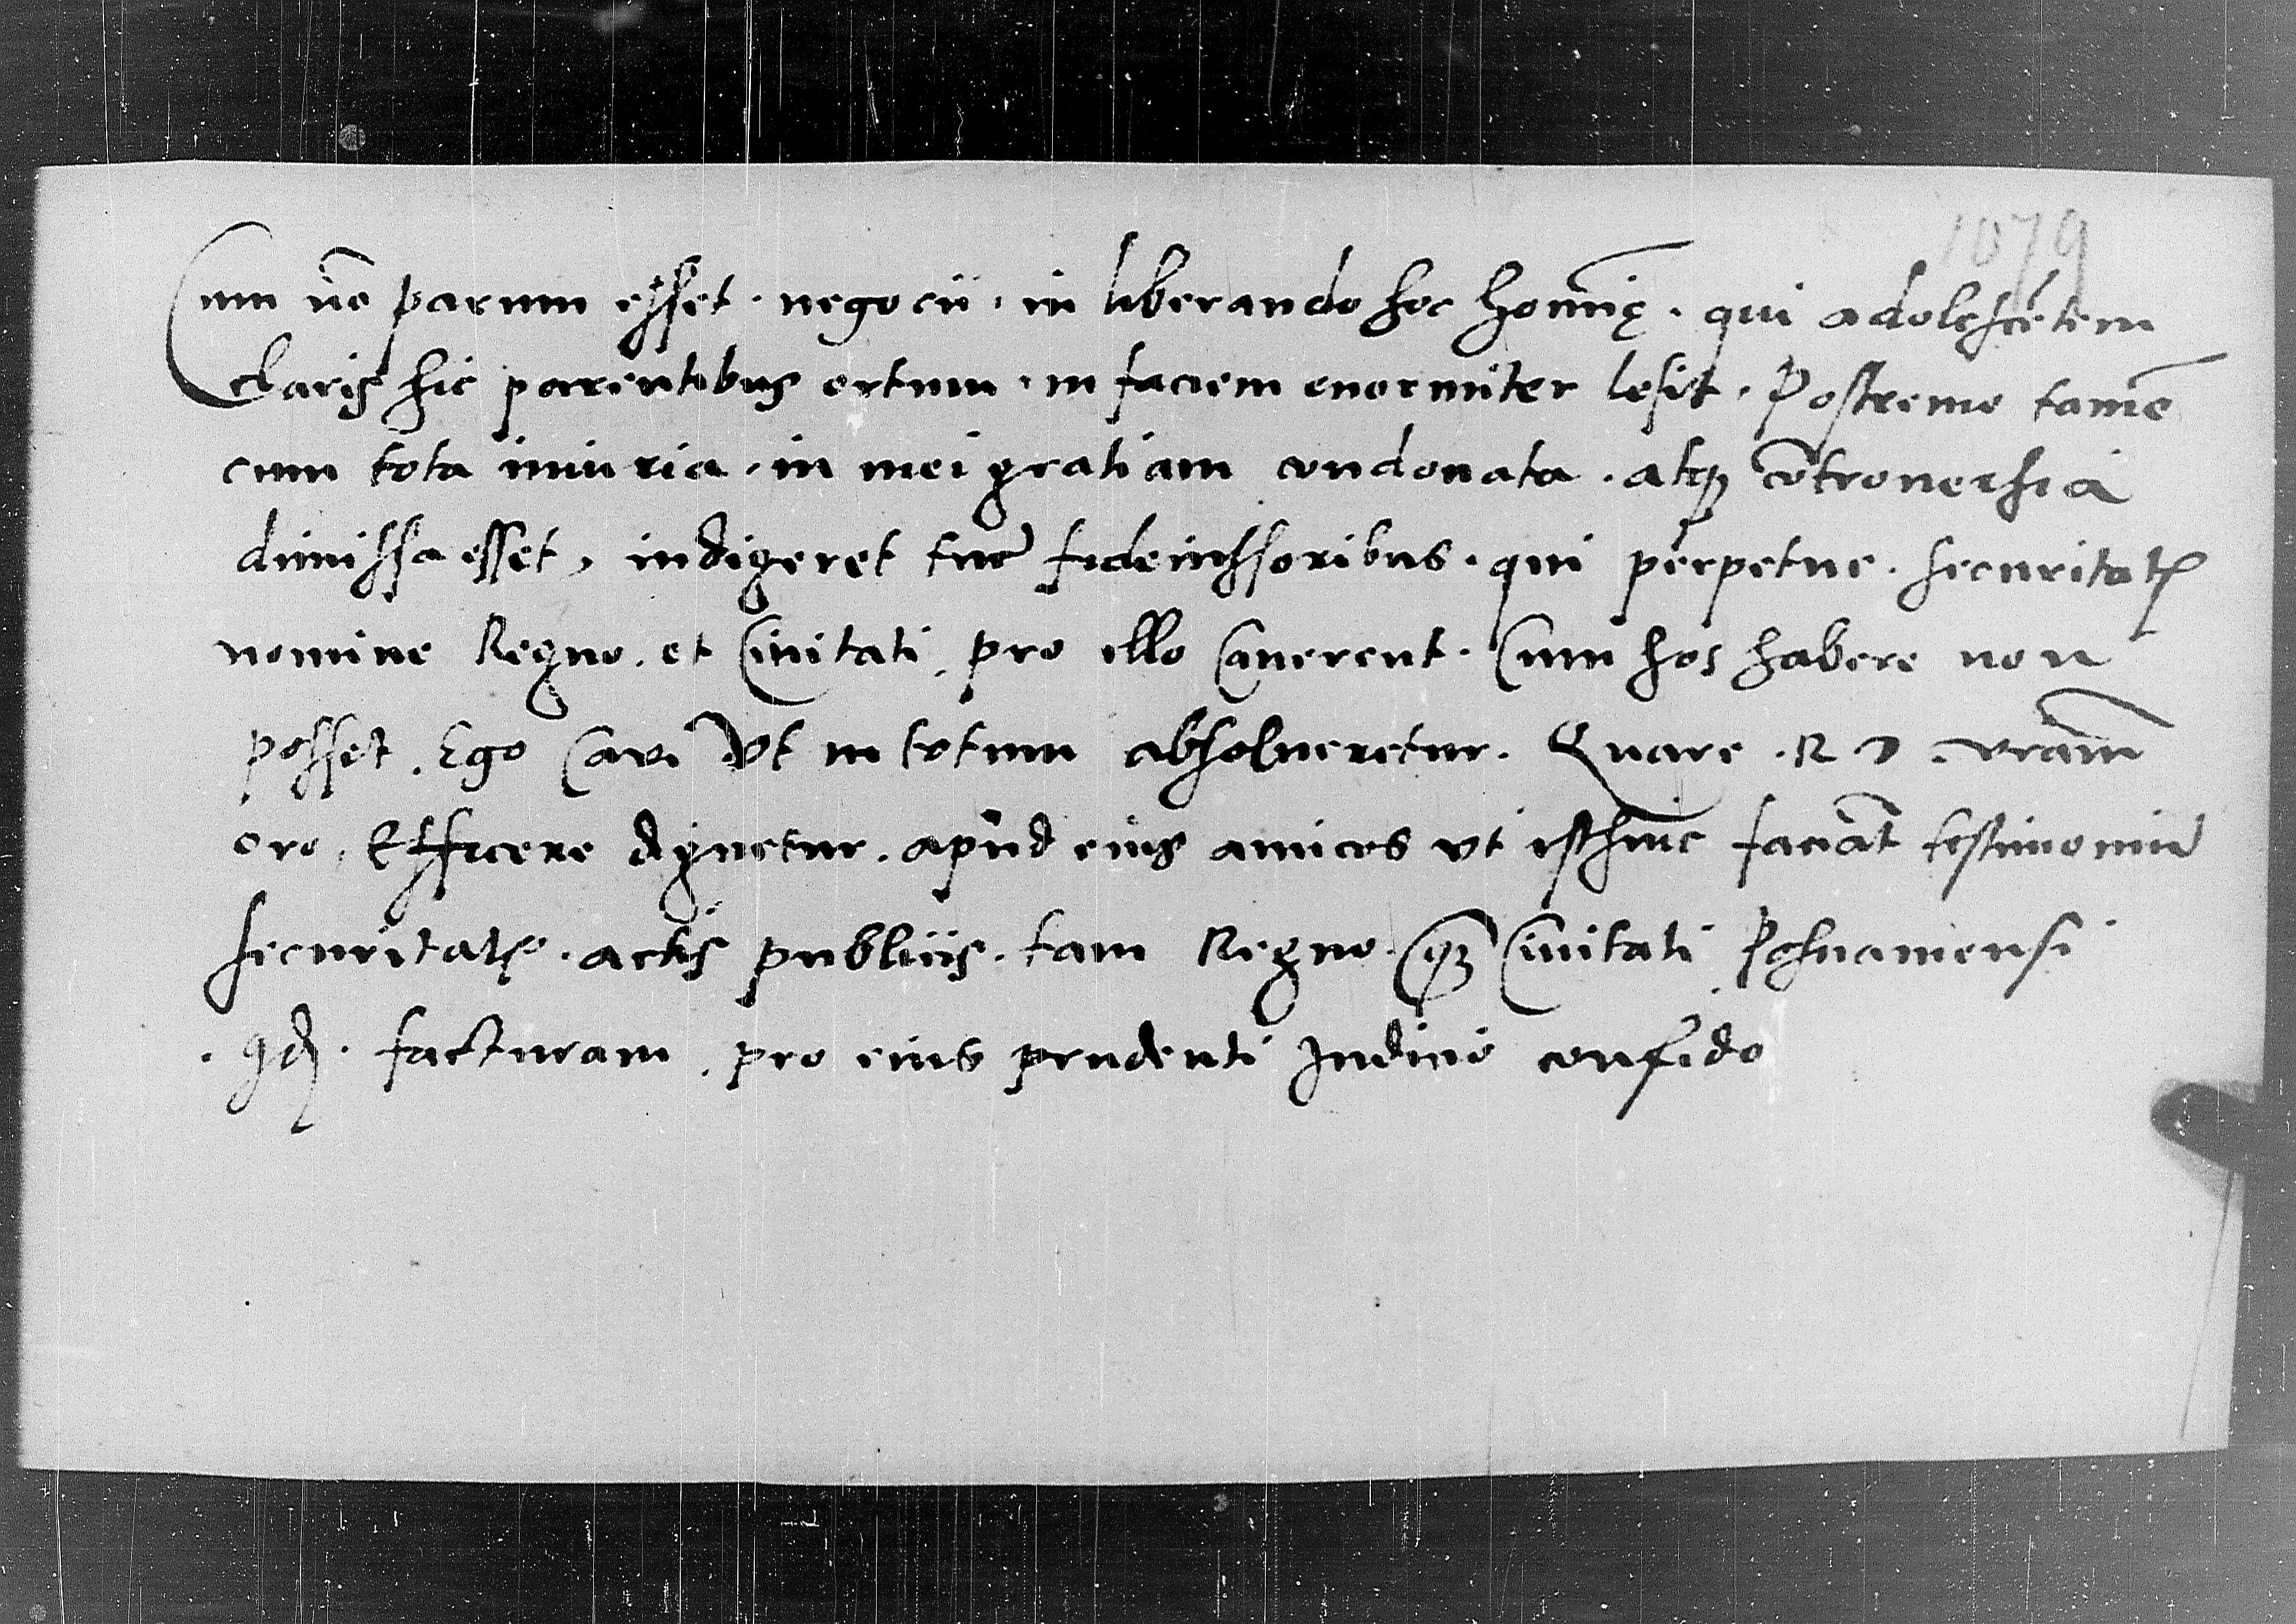 1079
Cum nō parum esset · negocii · in liberando hoc homīe · qui adolescētem
claris hic parentibus ortum · in faciem enormiter lesit · Postremo tamē
cum tota iniuria · in mei gratiam condonata · atq₃ cōtrouersia
dimissa esset, indigeret tūc fideiussoribus · qui perpetue · securitatꝭ
nomine Regno · et Ciuitati · pro illo Cauerent · Cum hos habere non
posset · Ego Cavi Vt in totum absolueretur · Quare · R D · vrām
oro, Efficere dignetur · apud eius amicos vt isthinc faciāt testimoniū
securitatꝭ · actis publiciis · tam Regno · q₃ Ciuitati Posnaniensi
· qđ · facturam · pro eius prudenti Judicio confido